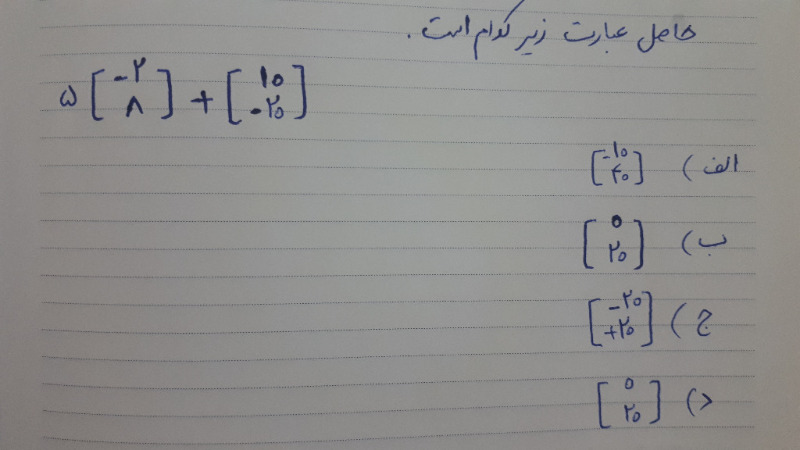 حاصل عبارت زیر کدام است.
۵ [-۲ ۸] + [۱۰ -۲۰]
الف) [-۱۰ ۴۰]
ب) [۰ ۲۰]
ج) [-۲۰ +۲۰]
د) [۰ ۲۰]